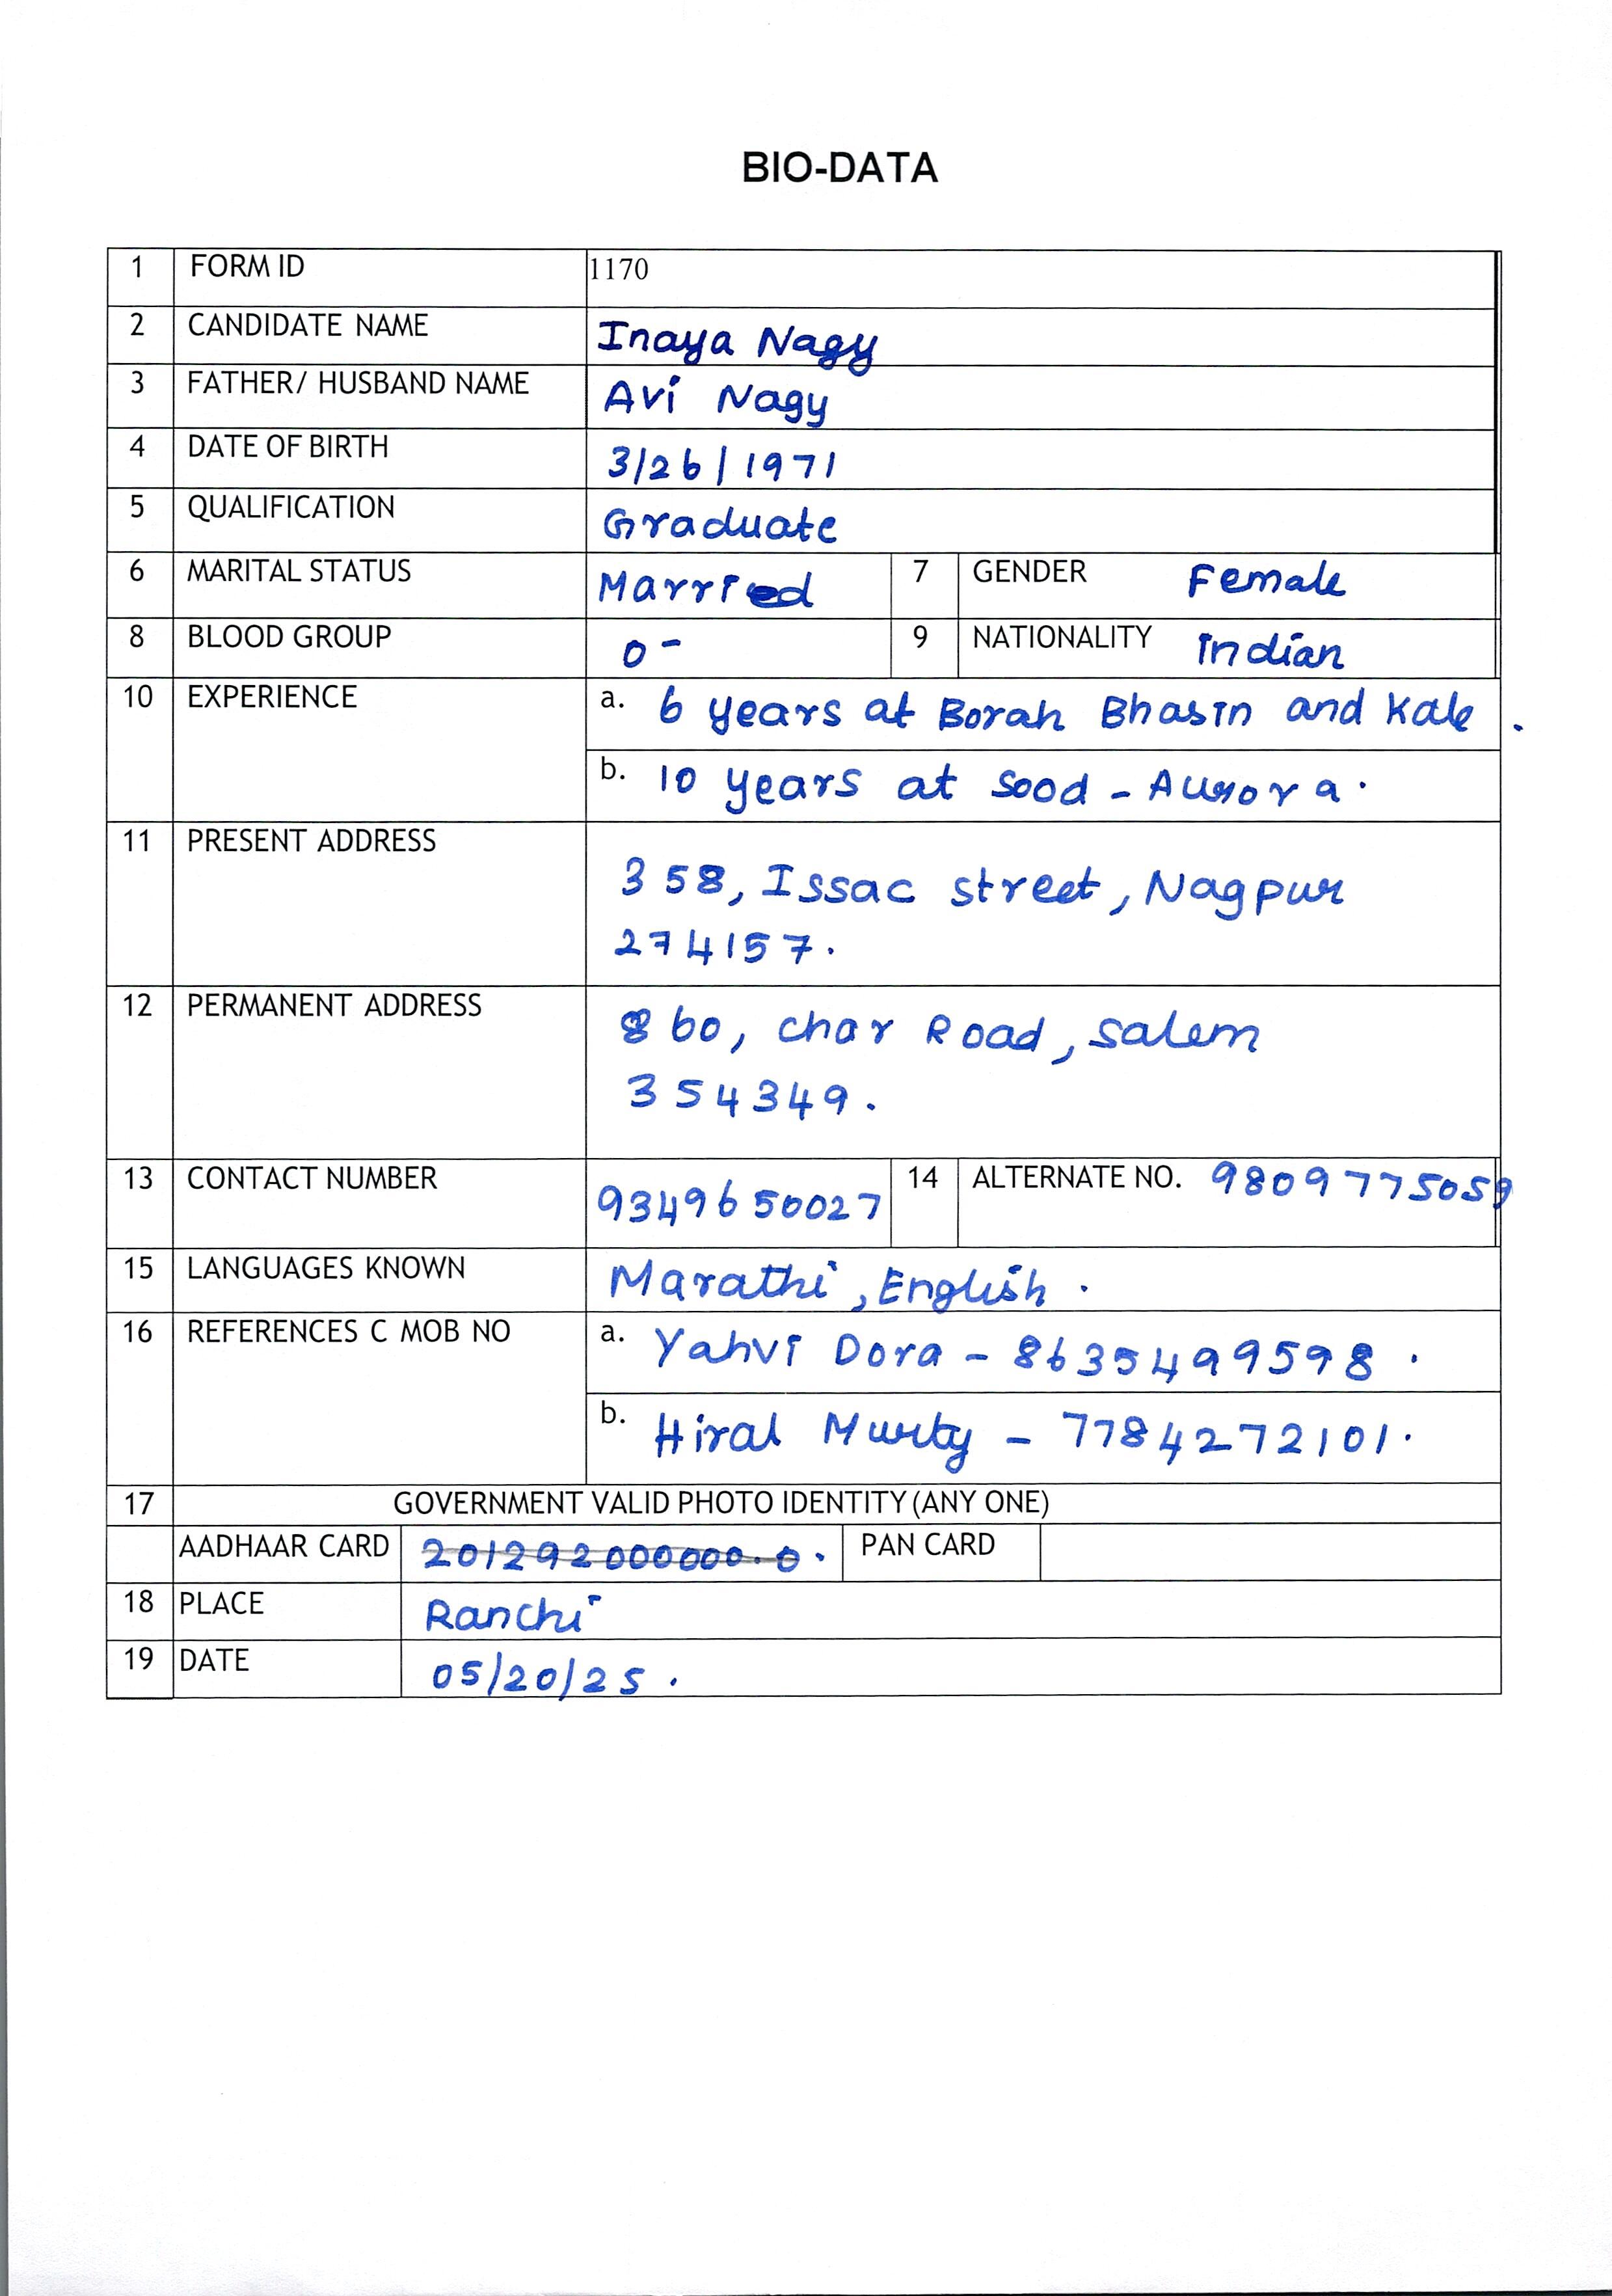 BIO-DATA
1 FORM ID 1170
2 CANDIDATE NAME Inaya Nagy
3 FATHER/ HUSBAND NAME Avi Nagy
4 DATE OF BIRTH 3/26/1971
5 QUALIFICATION Graduate
6 MARITAL STATUS Married 7 GENDER Female
8 BLOOD GROUP O- 9 NATIONALITY Indian
10 EXPERIENCE a. 6 years at Borah Bhasin and Kale .
b. 10 years at Sood - Aurora.
11 PRESENT ADDRESS
358, Issac street, Nagpur
274157.
12 PERMANENT ADDRESS
860, Char Road, Salem
354349.
13 CONTACT NUMBER 9349650027 14 ALTERNATE NO. 9809775059
15 LANGUAGES KNOWN Marathi, English.
16 REFERENCES C MOB NO a. Yahvi Dora - 8635499598.
b. Hiral Murty - 7784272101.
17 GOVERNMENT VALID PHOTO IDENTITY (ANY ONE)
AADHAAR CARD 201292000000.0. PAN CARD
18 PLACE Ranchi
19 DATE 05/20/25.